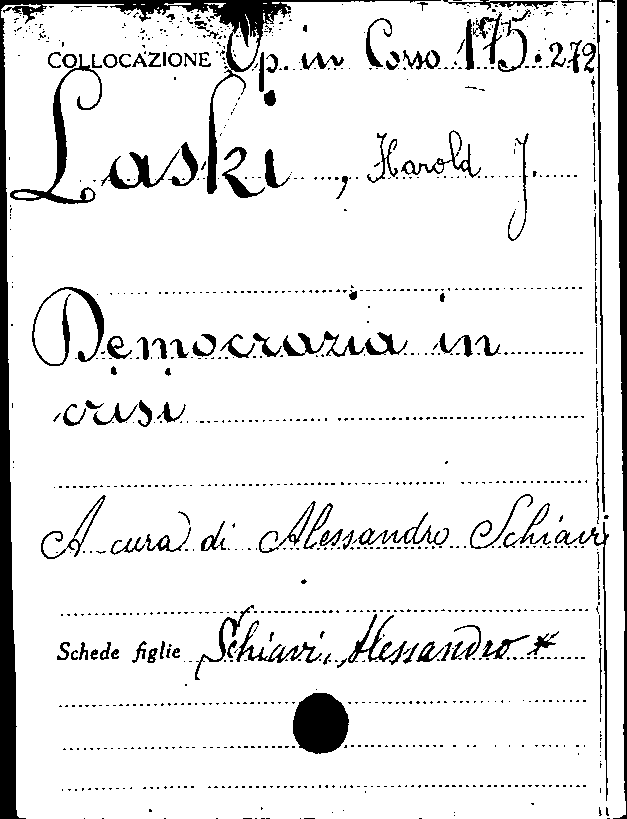 COLLOCAZIONE Op. in Corso 175.272
Laski, Harold J.
Democrazia in
crisi
A cura di Alessandro Schiavi
Schede figlie Schiavi, Alessandro *